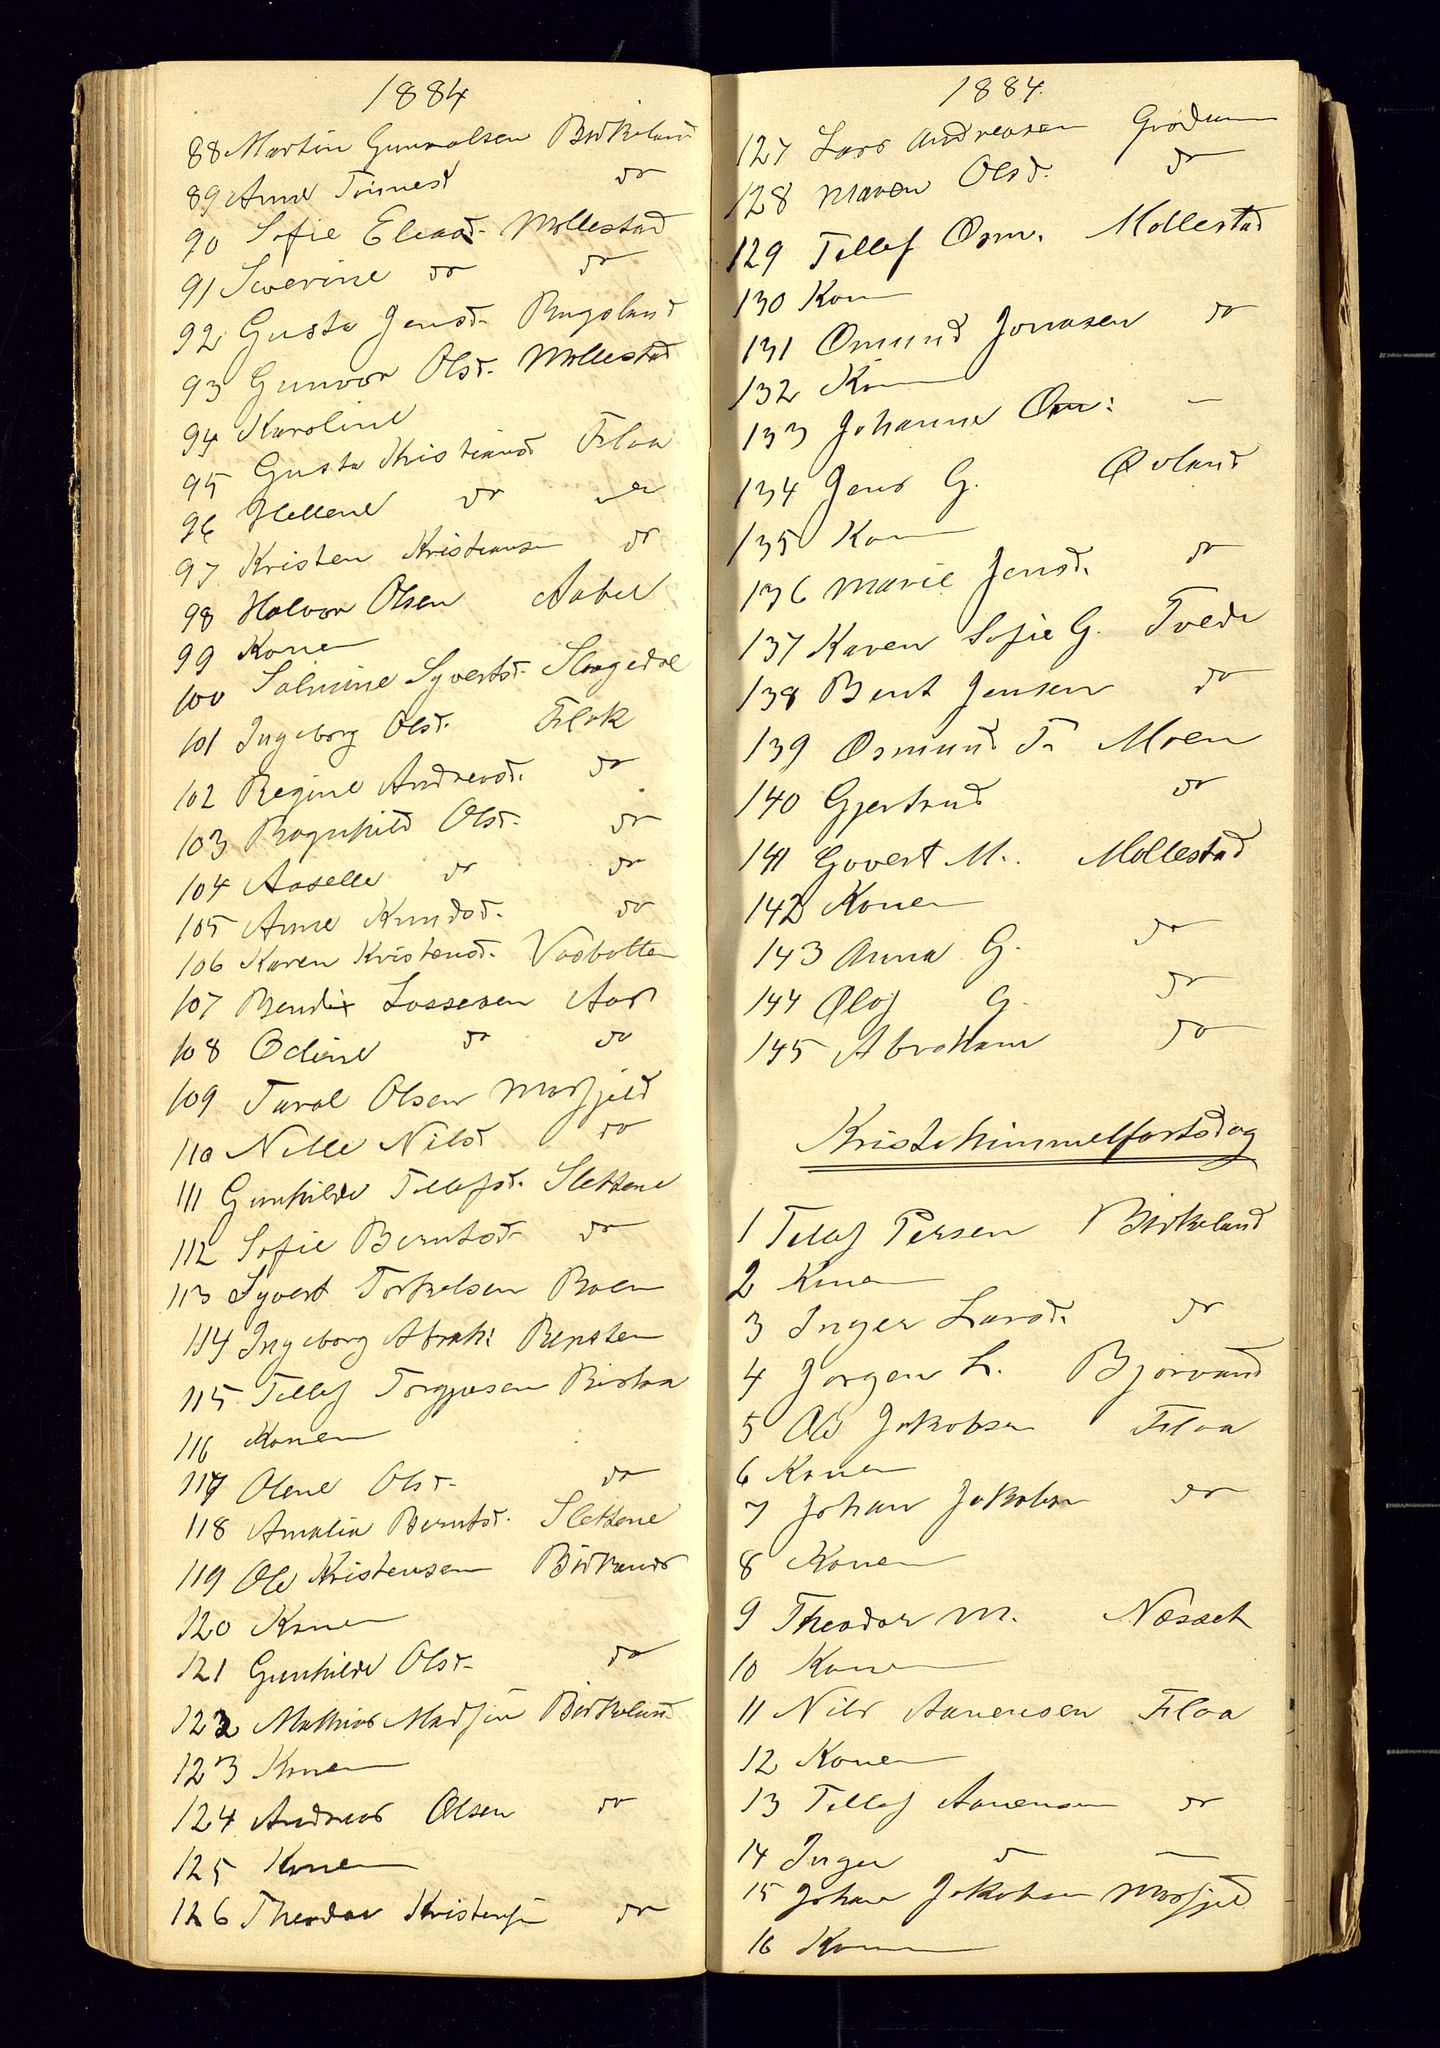 1884
88 Martin Gunvalsen Birkeland
89 Anne Tönnesd do
90 Sofie Eliasd. Mollestad
91 Severine do do
92 Gusta Jensd. Rugsland
93 Gunvor Olsd. Mollestad
94 Karoline
95 Gusta Kristiansd Flaa
96 Hellene do do
97 Kristen Kristiansen do
98 Halvor Olsen Aabel
99 Konen
100 Salmine Syvertsd. Slaagedal
101 Ingeborg Olsd. Flak
102 Regine Andreasd. do
103 Ragnhild Olsd. do
104 Aaselle do do
105 Anne Knudsd. do
106 Karen Kristensd. Vasbotten
107 Bendix Lassesen Aas
108 Odine do do
109 Taral Olsen Mosfjeld
110 Nille Nilsd do
111 Gunhilde Tellefsd. Slettene
112 Sofie Berntsd. do
113 Syvert Torkelsen Boen
114 Ingeborg Abrah: Repsten
115 Tellef Torgjusen Risláa
116 Konen
117 Olene Olsd. do
118 Amalia Berntsd. Slettene
119 Ole Kristensen Birkenes
120 Konen
121 Gunhilde Olsd. do
122 Mathias Madsen Birkeland
123 Konen
124 Andreas Olsen do
125 Konen
126 Theodor Kristensen do
1884.
127 Lars Andreasen Grödum
128 Maren Olsd. do
129 Tellef Osm. Mollestad
130 Kon
131 Osmund Jonasen do
132 Kon
133 Johanne Osm: –
134 Jens G. Øvland
135 Kon
136 Marie Jensd. do
137 Karen Sofie G. Tvede
138 Bent Jensen do
139 Osmund T. Moen
140 Gjertrud do
141 Govert M. Mollestad
142 Konen
143 Anna G. do
144 Olaf G. do
145 Abraham do
Kristihimmelfartsdag
1 Tellef Persen Birkeland
2 Konen
3 Inger Larsd. do
4 Jørgen L. Bjorvand
5 Ole Jakobsen Flaa
6 Konen
7 Johan Jakobsen do
8 Konen
9 Theodor M. Næsset
10 Konen
11 Nils Aanensen Flaa
12 Konen
13 Tellef Aanensen do
14 Inger do –
15 Johan Jakobsen Mosfjeld
16 Konen